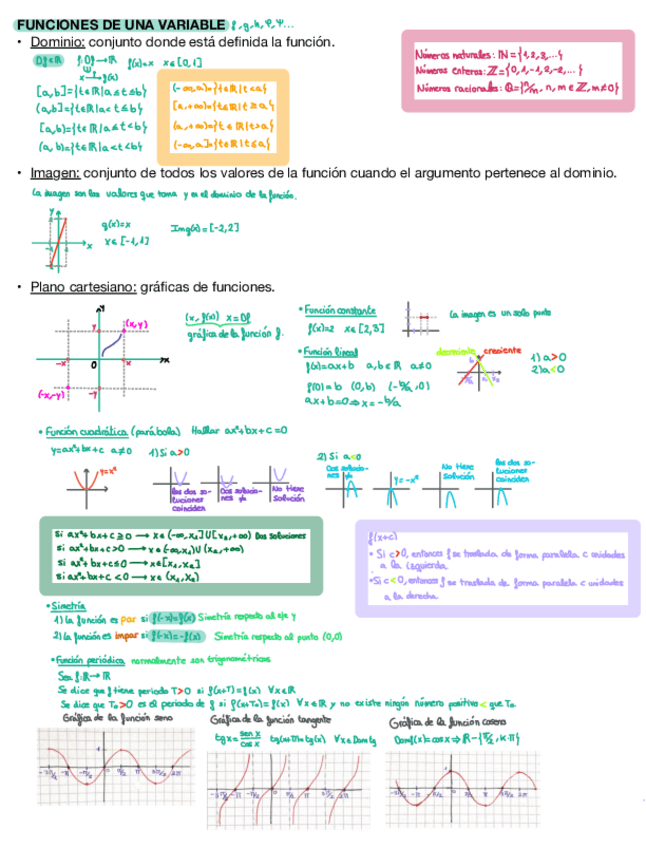 FUNCIONES DE UNA VARIABLE f, g, h, φ, Ψ...
• Dominio: conjunto donde está definida la función.
Df⊂ℝ f: Df→ℝ f(x)=x x∈[0,1]
x→f(x)
[a,b]={t∈ℝ|a≤t≤b}
(a,b]={t∈ℝ|a<t≤b}
[a,b)={t∈ℝ|a≤t<b}
(a,b)={t∈ℝ|a<t<b}
(-∞,a)={t∈ℝ|t<a}
[a,+∞)={t∈ℝ|t≥a}
(a,+∞)={t∈ℝ|t>a}
(-∞,a]={t∈ℝ|t≤a}
Números naturales: ℕ={1,2,3,...}
Números enteros: ℤ={0,1,-1,2,-2,...}
Números racionales: ℚ={n/m, n, m∈ℤ, m≠0}
• Imagen: conjunto de todos los valores de la función cuando el argumento pertenece al dominio.
La imagen son los valores que toma y en el dominio de la función.
g(x)=x
x∈[-1,1]
Img(x)=[-2,2]
• Plano cartesiano: gráficas de funciones.
(x, f(x)) x=Df
gráfica de la función f.
y
(x,y)
-x 0 x x
(-x,-y) -y
• Función constante
f(x)=2 x∈[2,3]
La imagen es un solo punto
• Función lineal
f(x)=ax+b a,b∈ℝ a≠0
f(0)=b (0,b) (-b/a,0)
ax+b=0⇒x=-b/a
decreciente creciente
1) a>0
2) a<0
• Función cuadrática (parábola) Hallar ax²+bx+c=0
y=ax²+bx+c a≠0 1) Si a>0
y=x²
Las dos soluciones coinciden
Dos soluciones
No tiene solución
2) Si a<0
Dos soluciones
y=-x²
No tiene solución
Las dos soluciones coinciden
Si ax²+bx+c≥0 → x∈(-∞,x₁]U[x₂,+∞) Dos soluciones
Si ax²+bx+c>0 → x∈(-∞,x₁)U(x₂,+∞)
Si ax²+bx+c≤0 → x∈[x₁,x₂]
Si ax²+bx+c<0 → x∈(x₁,x₂)
f(x+c)
• Si c>0, entonces f se traslada de forma paralela c unidades
a la izquierda.
• Si c<0, entonces f se traslada de forma paralela c unidades
a la derecha.
• Simetría
1) La función es par si f(-x)=f(x) Simetría respecto al eje y
2) La función es impar si f(-x)=-f(x) Simetría respecto al punto (0,0)
• Función periódica normalmente son trigonométricas
Sea f:ℝ→ℝ
Se dice que f tiene periodo T>0 si f(x+T)=f(x) ∀x∈ℝ
Se dice que T₀>0 es el periodo de f si f(x+T₀)=f(x) ∀x∈ℝ y no existe ningún número positivo < que T₀.
Gráfica de la función seno
Gráfica de la función tangente
tgx=sen x/cos x tg(x+π)=tg(x) ∀x∈Dom tg
Gráfica de la función coseno
Dom f(x)=cos x ⇒ ℝ-{π/2+k·π}